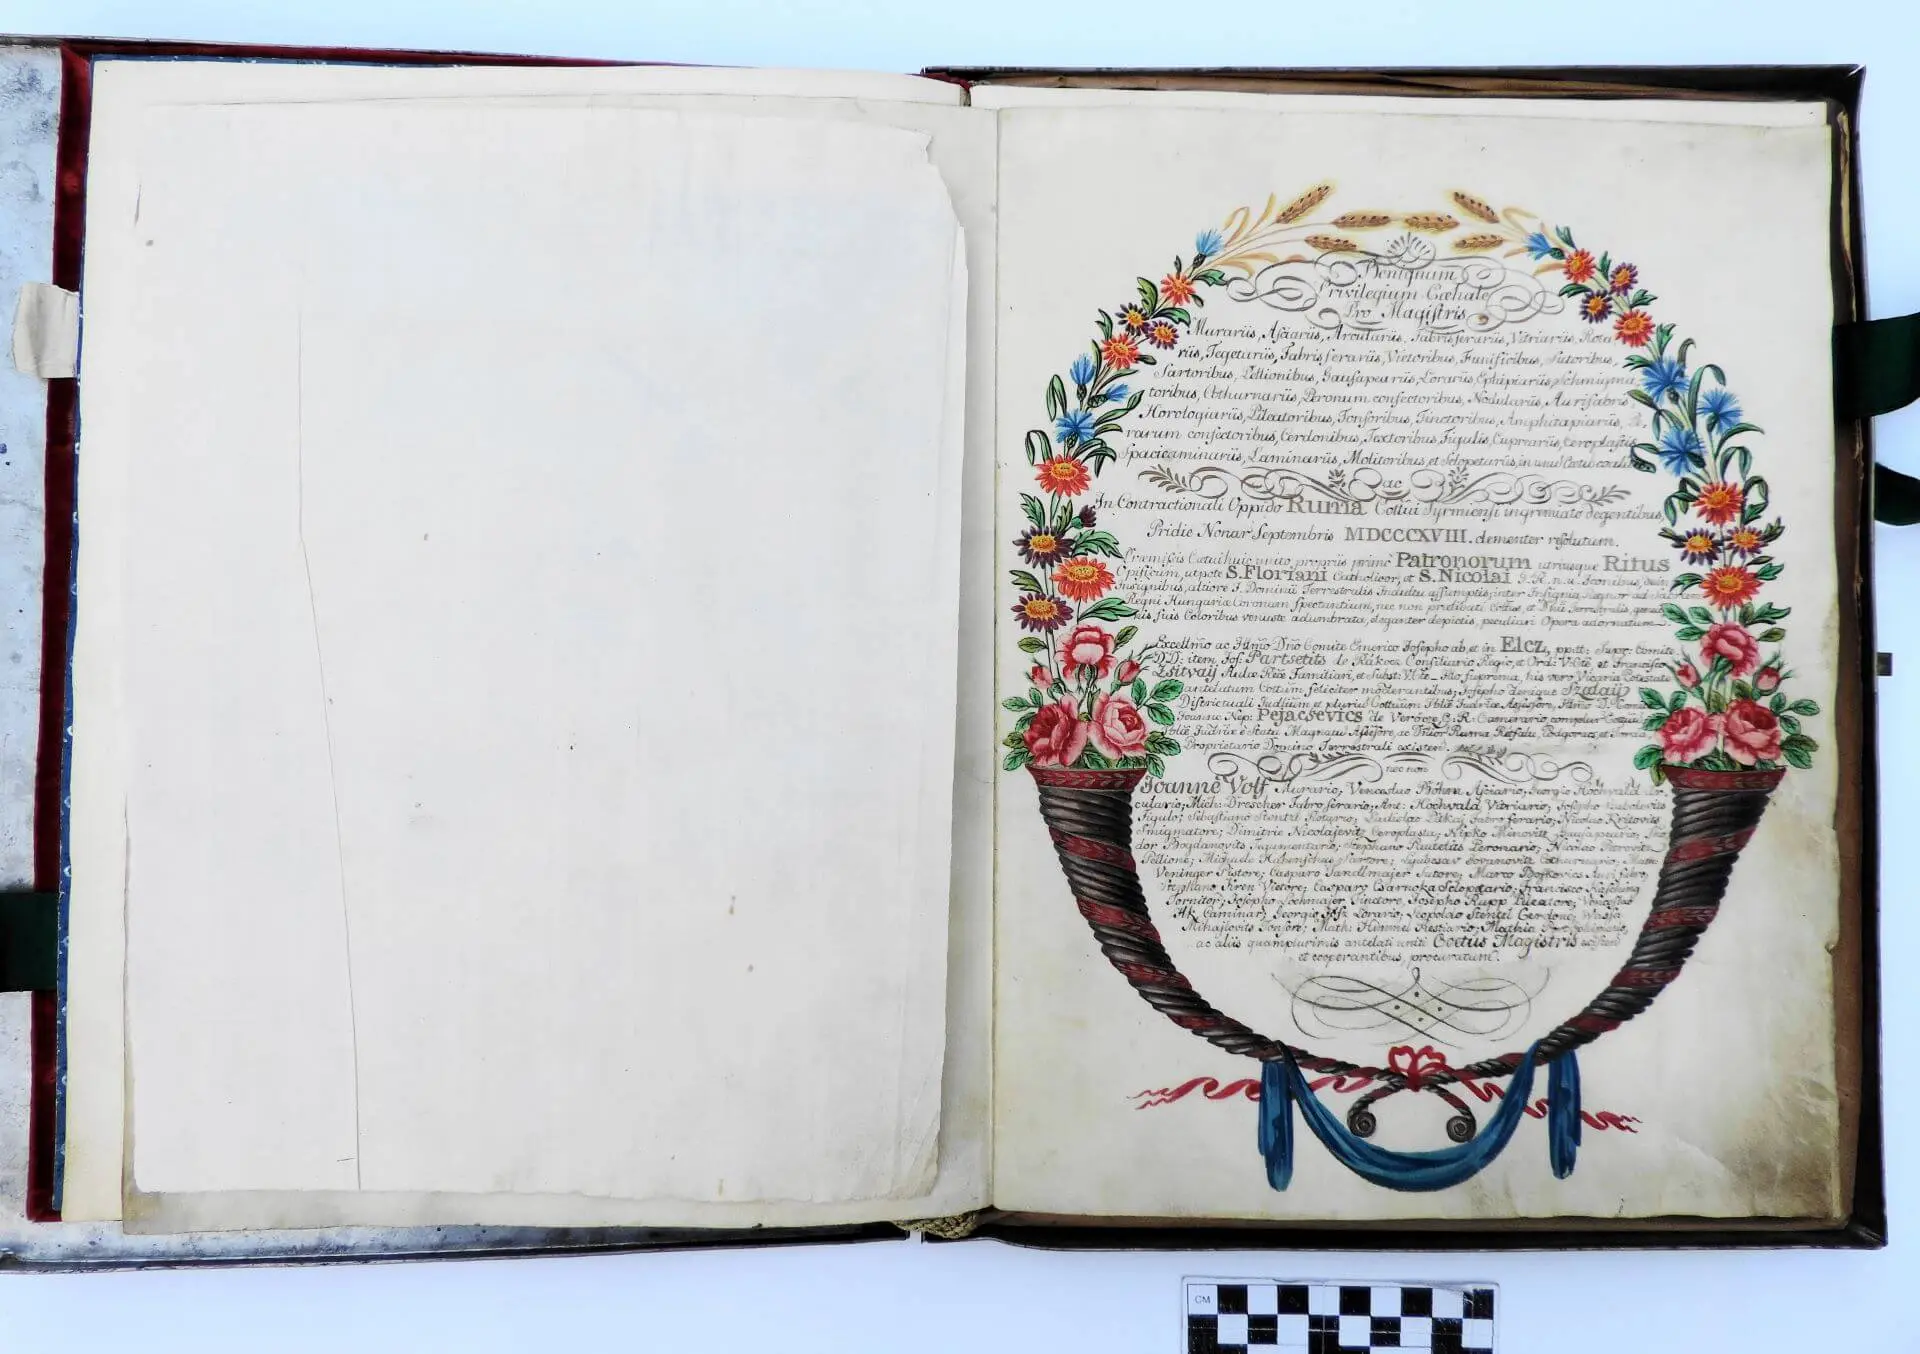 Benignum
Privilegium Cœhale
Pro Magistris
Murariis, Asciariis, Arculariis, Fabrisferariis, Vitriariis, Rota
riis, Tegetariis, Fabris ferariis, Vietoribus, Funificibus, Sutoribus,
Sartoribus, Pellionibus, Gausapeariis, Lorariis, Ephipiariis, Schmigma
toribus, Cothurnariis, Peronum confectoribus, Nodulariis, Aurifabris,
Horologiariis, Pileatoribus, Tonsoribus, Tinctoribus, Amphitapiariis,
rarum confectoribus, Cerdonibus, Textoribus, Figulis, Cupreariis, Ceroplastis
Spacicaminariis, Laminariis, Molitoribus, et Sclopetariis, in unum Cœtum
ac
In Contractionali Oppido Ruma Cottui Syrmiensi ingremiato degentibus,
Pridie Nonar Septembris MDCCCXVIII. clementer resolutum.
Præmissis Cœtuihuic unito, propriis primi Patronorum utriusque Ritus
Opificum, utpote S. Floriani Catholicor, et S. Nicolai G. R. n. u. Iconibus,
Insignibus, altiore J. Dominii Terrestralis Indultu assumptis, inter Insignia Regnor ad Sacram
Regni Hungariæ Coronam spectantium, nec non prætibati Cottus, et Dnii Terrestralis,
suis Coloribus venuste adumbrata, eleganter depictis, peculiari Opera adornatum.
Excellmo ac Illmo Dno Comite Emerico Josepho ab, et in Elcz, ppntt: Supr: Comite
DD: item Jos: Partsetits de Rákocz Consiliario Regio, et Ord: V.Cotte, et Francisco
Zsitvaij Aulæ Reæ Familiari, et Subst: V.Cotte, illo suprema, his vero Vicaria Potestate
antelatum Cottum feliciter moderantibus; Josepho denique Szalaij
Districtuali Judlium et plurium Cottuum Tblæ Judriæ Assessore, Illmo D. Comite
Joanne Nep: Pejacsevics de Verőcze, C: R: Camerario, complur Cottuum
Tblæ Judriæ e Statu Magnatu Assessore, ac Dnior Ruma, Retfalu, Podgoracs, et
Proprietario Domino Terrestrali existen.
nec non
Joanne Volf Murario, Venceslao Böhm Asciario, Georgio Hochvald Ar
culario; Mich: Drescher Fabro ferario; Ant: Hochvald Vitriario; Josepho
Figulo; Sebastiano Stentzl Rotario; Ladislao Fabro ferario; Nicolao Kritovits
Smigmatore; Dimitrie Nicolajevitz Ceroplasta; Nipko Menovitz Gausapeario;
dor Bogdanovits Tegumentario; Stephano Reutelits Peronario; Nicolao Petrovitz
Pellione; Michaele Habenschus Sartore; Ljubesav Jovanovitz Cothurnario; Math:
Veninger Pistore; Casparo Sandlmajer Sutore; Marco Boskovics Auri fabro;
Stephano Siren Vietore; Casparo Csarnoka Sclopetario; Francisco Kasching
Tornitor; Josepho Lochmajer Tinctore, Josepho Rupp Pileatore; Venceslao
Ak Caminar; Georgio Lorario; Leopoldo Stentzl Cerdone; Wassa
Mihajlovits Tonsore; Math: Himmel Restiario; Mathia
ac aliis quamplurimis antelati uniti Cœtus Magistris existen
et cooperantibus, procuratum.
CM